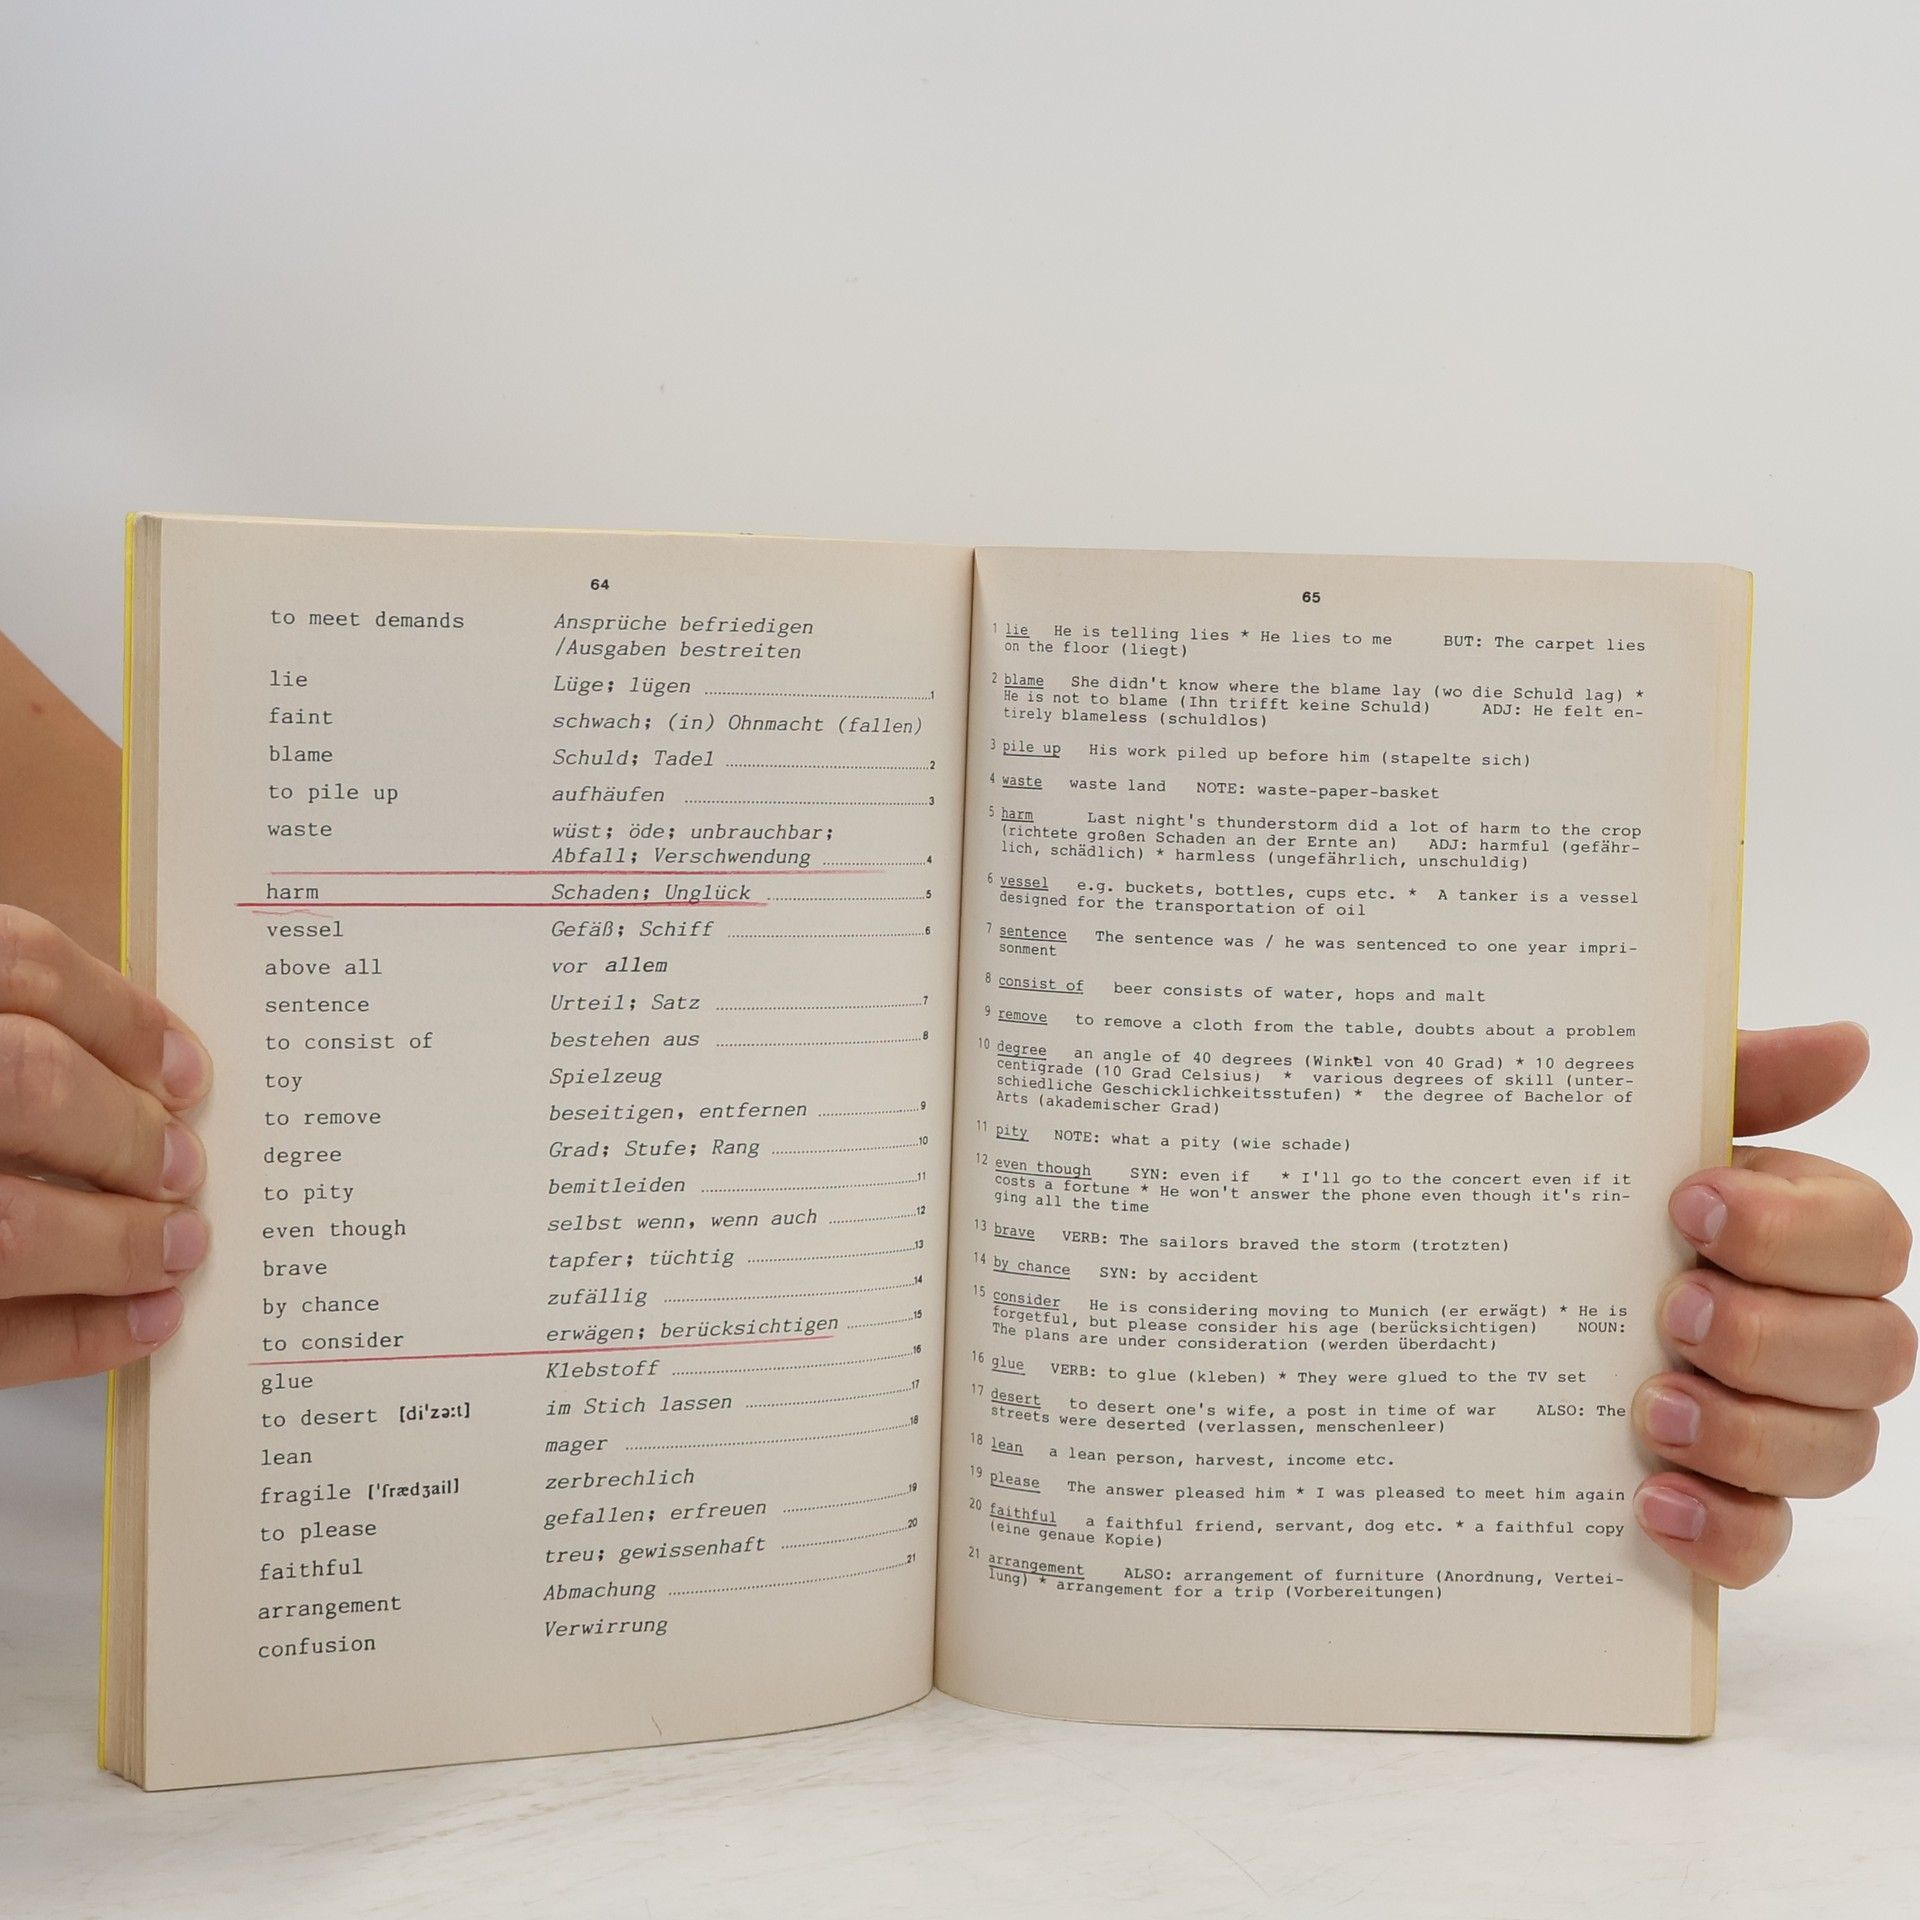 64
to meet demands Ansprüche befriedigen
/Ausgaben bestreiten
lie Lüge; lügen ........1
faint schwach; (in) Ohnmacht (fallen)
blame Schuld; Tadel ........2
to pile up aufhäufen ........3
waste wüst; öde; unbrauchbar;
Abfall; Verschwendung ........4
harm Schaden; Unglück ........5
vessel Gefäß; Schiff ........6
above all vor allem
sentence Urteil; Satz ........7
to consist of bestehen aus ........8
toy Spielzeug
to remove beseitigen, entfernen ........9
degree Grad; Stufe; Rang ........10
to pity bemitleiden ........11
even though selbst wenn, wenn auch ........12
brave tapfer; tüchtig ........13
by chance zufällig ........14
to consider erwägen; berücksichtigen ........15
glue Klebstoff ........16
to desert [di'zə:t] im Stich lassen ........17
lean mager ........18
fragile ['frædʒail] zerbrechlich
to please gefallen; erfreuen ........19
faithful treu; gewissenhaft ........20
arrangement Abmachung ........21
confusion Verwirrung
65
1 lie He is telling lies * He lies to me BUT: The carpet lies
on the floor (liegt)
2 blame She didn't know where the blame lay (wo die Schuld lag) *
He is not to blame (Ihn trifft keine Schuld) ADJ: He felt en-
tirely blameless (schuldlos)
3 pile up His work piled up before him (stapelte sich)
4 waste waste land NOTE: waste-paper-basket
5 harm Last night's thunderstorm did a lot of harm to the crop
(richtete großen Schaden an der Ernte an) ADJ: harmful (gefähr-
lich, schädlich) * harmless (ungefährlich, unschuldig)
6 vessel e.g. buckets, bottles, cups etc. * A tanker is a vessel
designed for the transportation of oil
7 sentence The sentence was / he was sentenced to one year impri-
sonment
8 consist of beer consists of water, hops and malt
9 remove to remove a cloth from the table, doubts about a problem
10 degree an angle of 40 degrees (Winkel von 40 Grad) * 10 degrees
centigrade (10 Grad Celsius) * various degrees of skill (unter-
schiedliche Geschicklichkeitsstufen) * the degree of Bachelor of
Arts (akademischer Grad)
11 pity NOTE: what a pity (wie schade)
12 even though SYN: even if * I'll go to the concert even if it
costs a fortune * He won't answer the phone even though it's rin-
ging all the time
13 brave VERB: The sailors braved the storm (trotzten)
14 by chance SYN: by accident
15 consider He is considering moving to Munich (er erwägt) * He is
forgetful, but please consider his age (berücksichtigen) NOUN:
The plans are under consideration (werden überdacht)
16 glue VERB: to glue (kleben) * They were glued to the TV set
17 desert to desert one's wife, a post in time of war ALSO: The
streets were deserted (verlassen, menschenleer)
18 lean a lean person, harvest, income etc.
19 please The answer pleased him * I was pleased to meet him again
20 faithful a faithful friend, servant, dog etc. * a faithful copy
(eine genaue Kopie)
21 arrangement ALSO: arrangement of furniture (Anordnung, Vertei-
lung) * arrangement for a trip (Vorbereitungen)